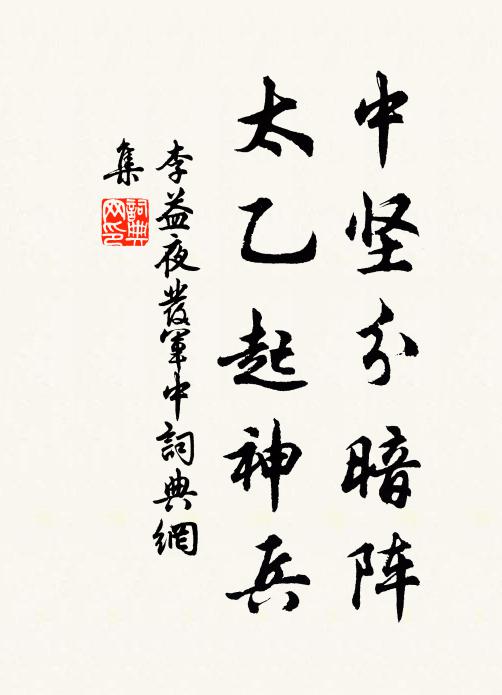 中坚分暗阵
太乙起神兵
李益夜發軍中詞典網
集
詞典
网印